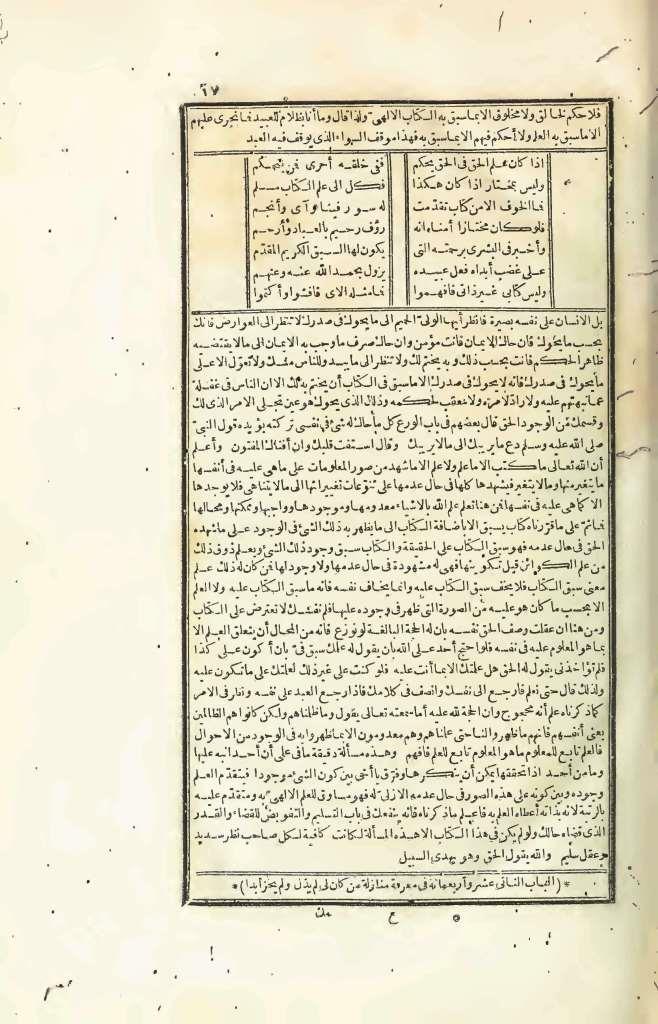 ١٦
فلا حكم لخالق ولا مخلوق الا بما سبق به الكتاب الالهى ولذا قال وما أنا بظلام للعبيد فما نجرى عليهم
الا ما سبق به العلم ولا أحكم فيهم الا بما سبق به فهذا موقف السواء الذى يوقف فيه العبد
اذا كان علم الحق فى الحق يحكم فنى خلقه أحرى فن يتحكم
وليس بمختار اذا كان هكذا فكل الى علم الكتاب مسلم
فما الخوف الا من كتاب تقدمت له سور فينا وآى وأنجم
فلو كان مختارا أمناء انه رؤف رحيم بالعباد وأرحم
وأخبر فى البشرى برحمته التى يكون لها السبق الكريم المقدم
على غضب أبداه فعل عبيده يزول بحمد الله عنه وعنهم
وليس كتابى غير ذاتى فافهموا فما مثله الاى فافشوا وأكتموا
بل الانسان على نفسه بصيرة فانظر أيها الولى الحميم الى ما يحوك فى صدرك لا تنظر الى العوارض فانك
بحسب ما يحوك فان حاك الايمان فانت مؤمن وان حاك صرف ما وجب به الايمان الى ما لا يقتضيه
ظاهر الحكم فانت بحسب ذلك وبه يختم لك ولا تنظر الى ما يبدو للناس منك ولا تعول الا على
ما يحوك فى صدرك فانه لا يحوك فى صدرك الا ما سبق فى الكتاب أن يختم به لك الا ان الناس فى غفلة
عما نبهتهم عليه ولا راد لامره ولا معقب لحكمه وذلك الذى يحوك هو عين تجلى الامر الذى لك
وقسمك من الوجود الحق قال بعضهم فى باب الورع كل ما حاك له شئ فى نفسى تركته يؤيده قول النبى
صلى الله عليه وسلم دع ما يريبك الى ما لا يريبك وقال استفت قلبك وان أفتاك المفتون وأعلم
أن الله تعالى ما كتب الا ما علم ولا علم الا ما شهد من صور المعلومات على ما هى عليه فى أنفسها
ما يتغير منها وما لا يتغير فيشهدها كلها فى حال عدمها على تنوعات تغييراتها الى ما لا يتناهى فلا يوجدها
الا كما هى عليه فى نفسها فمن هنا تعلم علم الله بالاشياء معدومها وموجودها وواجبها وممكنها ومحالها
فما ثم على ما قررناه كتاب يسبق الا باضافة الكتاب الى ما يظهر به ذلك الشئ فى الوجود على ما شهده
الحق فى حال عدمه فهو سبق الكتاب على الحقيقة والكتاب سبق وجود ذلك الشئ ويعلم ذوق ذلك
من علم الكوائن قبل تكوينها فهى له مشهودة فى حال عدمها ولا وجود لها فمن كان له ذلك علم
معنى سبق الكتاب فلا يخف سبق الكتاب عليه وانما يخاف نفسه فانه ما سبق الكتاب عليه ولا العلم
الا بحسب ما كان هو عليه من الصورة التى ظهر فى وجوده عليها فلم نفسك لا تعترض على الكتاب
ومن هنا ان عقلت وصف الحق نفسه بان له الحجة البالغة لو نوزع فانه من المحال أن يتعلق العلم الا
بما هو المعلوم عليه فى نفسه فلو احتج أحد على الله بان يقول له علمك سبق فى بان أكون على كذا
فلم تؤاخذنى يقول له الحق هل علمتك الا بما أنت عليه فلو كنت على غير ذلك لعلمتك على ما تكون عليه
ولذلك قال حتى نعلم فارجع الى نفسك وانصف فى كلامك فاذا رجع العبد على نفسه ونظر فى الامر
كما ذكرناه علم أنه محجوج وان الحجة لله عليه أما سمعته تعالى يقول وما ظلمناهم ولكن كانوا هم الظالمين
يعنى أنفسهم فانهم ما ظهروا لنا حتى علمناهم وهم معدومون الا بما ظهروا به فى الوجود من الاحوال
فالعلم تابع للمعلوم ما هو المعلوم تابع للعلم فافهم وهذه مسألة دقيقة ما فى علمى أن أحدا نبه عليها
وما من أحد اذا تحققها يمكن أن ينكرها وفرق يا أخى بين كون الشئ موجودا فيتقدم العلم
وجوده وبين كونه على هذه الصور فى حال عدمه الازلى له فهو مساوق للعلم الالهى به ومتقدم عليه
بالرتبة لانه بذاته أعطاه العلم به فاعلم ما ذكرناه فانه ينفعك فى باب التسليم والتفويض للقضاء والقدر
الذى قضاه حالك ولو لم يكن فى هذا الكتاب الا هذه المسألة لكانت كافية لكل صاحب نظر سديد
وعقل سليم والله يقول الحق وهو يهدى السبيل
* (الباب الثانى عشر وأربعمائة فى معرفة منازلة من كان لى لم يذل ولم يخز أبدا) *